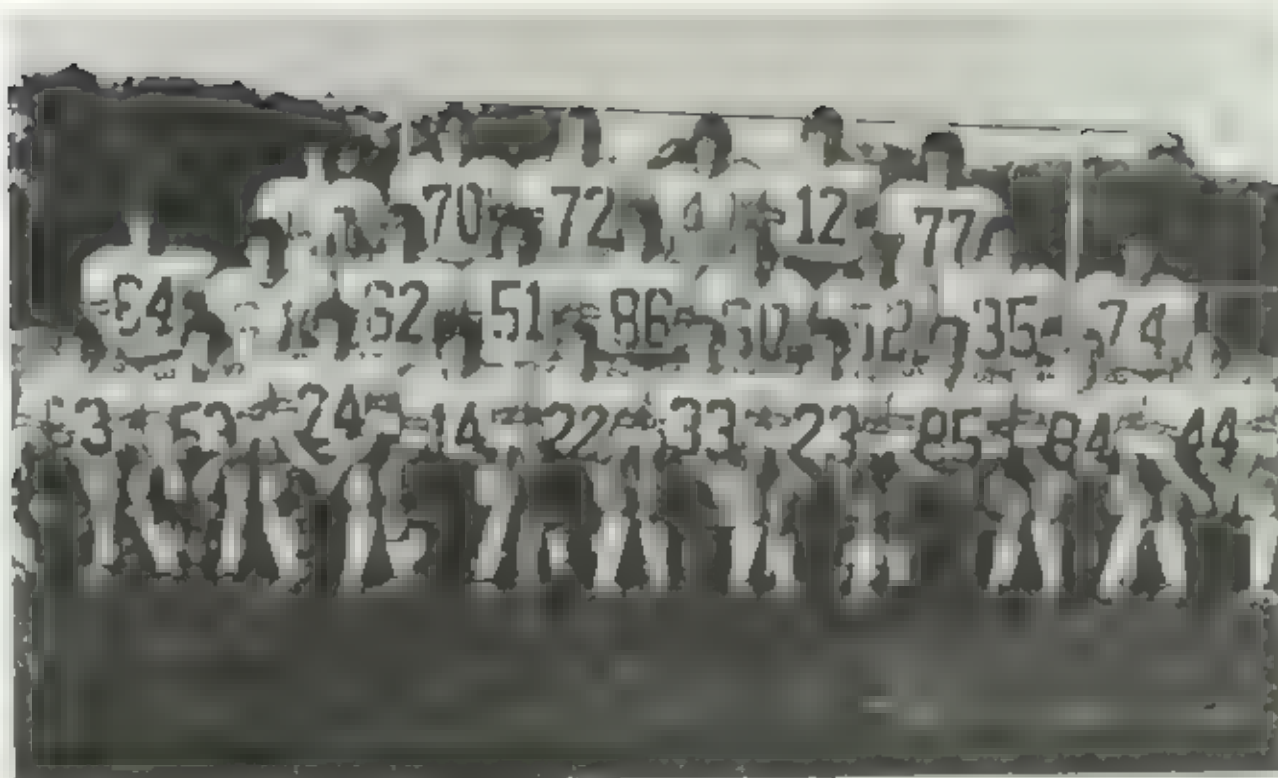 70 72 12 77
64 62 51 86 35 74
63 53 24 14 22 33 23 85 84 44